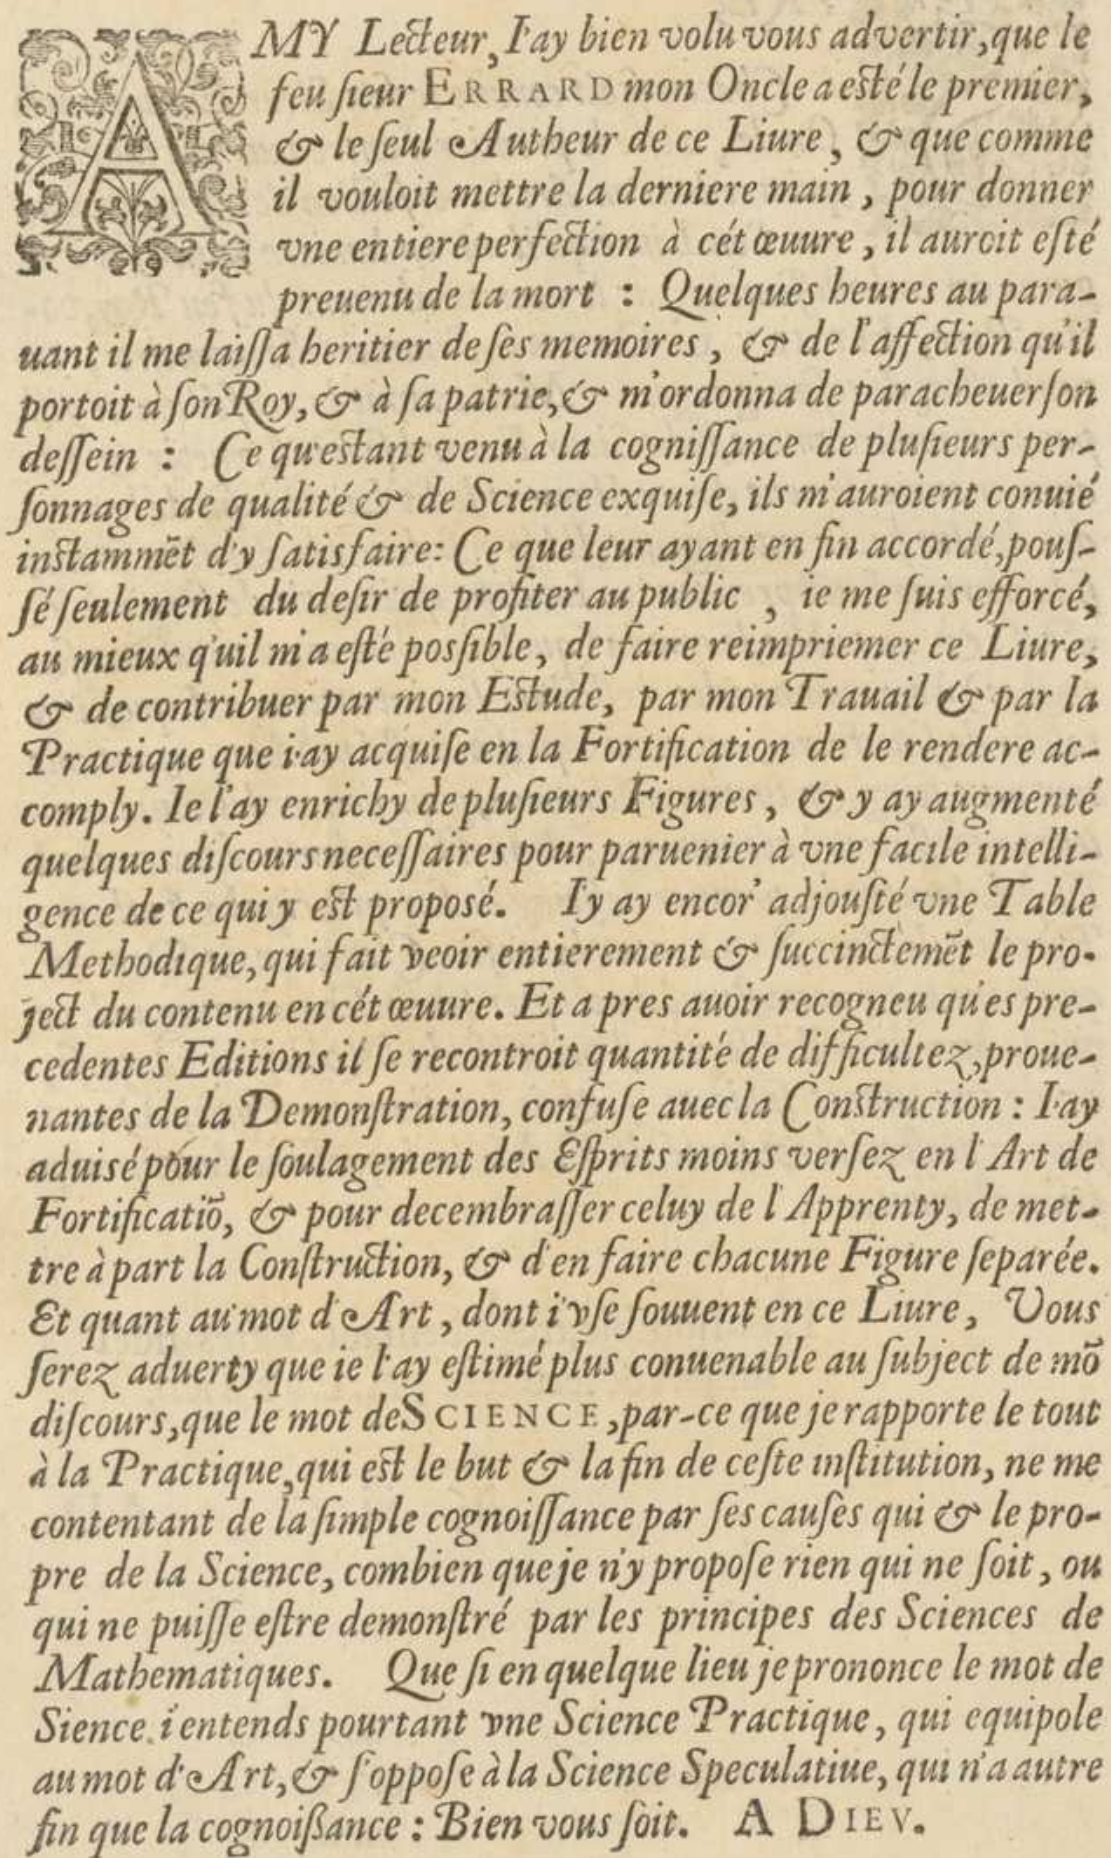 AMY Lecteur, I'ay bien volu vous advertir, que le
feu sieur ERRARD mon Oncle a esté le premier,
& le seul Autheur de ce Liure, & que comme
il vouloit mettre la derniere main, pour donner
vne entiere perfection à cét œuure, il auroit esté
preuenu de la mort : Quelques heures au para-
uant il me laissa heritier de ses memoires, & de l'affection qu'il
portoit à son Roy, & à sa patrie, & m'ordonna de paracheuer son
dessein : Ce qu'estant venu à la cognissance de plusieurs per-
sonnages de qualité & de Science exquise, ils m'auroient conuié
instammẽt d'y satisfaire: Ce que leur ayant en fin accordé, pous-
sé seulement du desir de profiter au public, ie me suis efforcé,
au mieux q'uil m'a esté possible, de faire reimpriemer ce Liure,
& de contribuer par mon Estude, par mon Trauail & par la
Practique que i'ay acquise en la Fortification de le rendere ac-
comply. Ie l'ay enrichy de plusieurs Figures, & y ay augmenté
quelques discours necessaires pour paruenier à vne facile intelli-
gence de ce qui y est proposé. I'y ay encor' adjousté vne Table
Methodique, qui fait veoir entierement & succinctemẽt le pro-
ject du contenu en cét œuure. Et a pres auoir recogneu qu'es pre-
cedentes Editions il se recontroit quantité de difficultez, proue-
nantes de la Demonstration, confuse auec la Construction : I'ay
aduisé pour le soulagement des Esprits moins versez en l'Art de
Fortificatiõ, & pour decembrasser celuy de l'Apprenty, de met-
tre à part la Construction, & d'en faire chacune Figure separée.
Et quant au mot d'Art, dont i'vse souuent en ce Liure, Vous
serez aduerty que ie l'ay estimé plus conuenable au subject de mõ
discours, que le mot de SCIENCE, par-ce que je rapporte le tout
à la Practique, qui est le but & la fin de ceste institution, ne me
contentant de la simple cognoissance par ses causes qui & le pro-
pre de la Science, combien que je n'y propose rien qui ne soit, ou
qui ne puisse estre demonstré par les principes des Sciences de
Mathematiques. Que si en quelque lieu je prononce le mot de
Sience, i'entends pourtant vne Science Practique, qui equipole
au mot d'Art, & s'oppose à la Science Speculatiue, qui n'a autre
fin que la cognoissance : Bien vous soit. A DIEV.